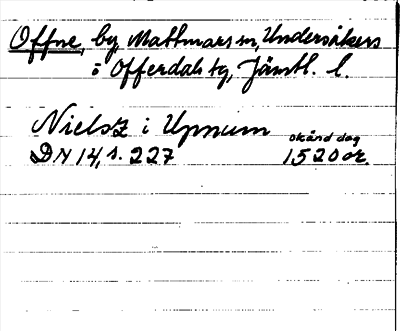 Offne, by, Mattmars sn, Undersåkers
o Offerdals tg, Jämtl. l.
Nielsz i Upnum
DN 14, s. 227 okänd dag 1520 or.